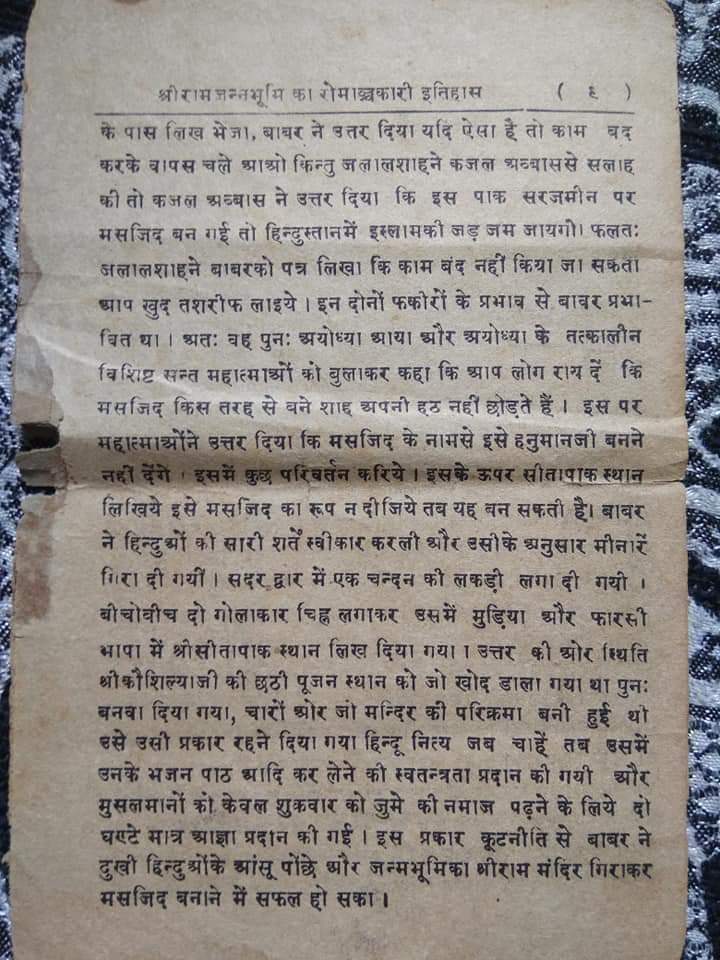 श्रीरामजन्नभूमि का रोमाञ्चकारी इतिहास ( ६ )
के पास लिख भेजा, बाबर ने उत्तर दिया यदि ऐसा है तो काम बद
करके वापस चले आओ किन्तु जलालशाहने कजल अब्बाससे सलाह
की तो कजल अब्बास ने उत्तर दिया कि इस पाक सरजमीन पर
मसजिद बन गई तो हिन्दुस्तानमें इस्लामकी जड़ जम जायगी। फलतः
जलालशाहने बाबरको पत्र लिखा कि काम बंद नहीं किया जा सकता
आप खुद तशरीफ लाइये । इन दोनों फकीरों के प्रभाव से बाबर प्रभा-
वित था । अतः वह पुनः अयोध्या आया और अयोध्या के तत्कालीन
विशिष्ट सन्त महात्माओं को बुलाकर कहा कि आप लोग राय दें कि
मसजिद किस तरह से बने शाह अपनी हठ नहीं छोड़ते हैं । इस पर
महात्माओंने उत्तर दिया कि मसजिद के नामसे इसे हनुमानजी बनने
नहीं देंगे । इसमें कुछ परिवर्तन करिये । इसके ऊपर सीतापाक स्थान
लिखिये इसे मसजिद का रूप न दीजिये तब यह बन सकती है। बाबर
ने हिन्दुओं की सारी शर्तें स्वीकार करली और उसीके अनुसार मीनारें
गिरा दी गयीं । सदर द्वार में एक चन्दन की लकड़ी लगा दी गयी ।
बीचोबीच दो गोलाकार चिह्न लगाकर उसमें मुड़िया और फारसी
भाषा में श्रीसीतापाक स्थान लिख दिया गया । उत्तर की ओर स्थिति
श्रीकौशिल्याजी की छठी पूजन स्थान को जो खोद डाला गया था पुनः
बनवा दिया गया, चारों ओर जो मन्दिर की परिक्रमा बनी हुई थी
उसे उसी प्रकार रहने दिया गया हिन्दू नित्य जब चाहें तब उसमें
उनके भजन पाठ आदि कर लेने की स्वतन्त्रता प्रदान की गयी और
मुसलमानों को केवल शुक्रवार को जुमे की नमाज पढ़ने के लिये दो
घण्टे मात्र आज्ञा प्रदान की गई । इस प्रकार कूटनीति से बाबर ने
दुखी हिन्दुओंके आंसू पोंछे और जन्मभूमिका श्रीराम मंदिर गिराकर
मसजिद बनाने में सफल हो सका ।